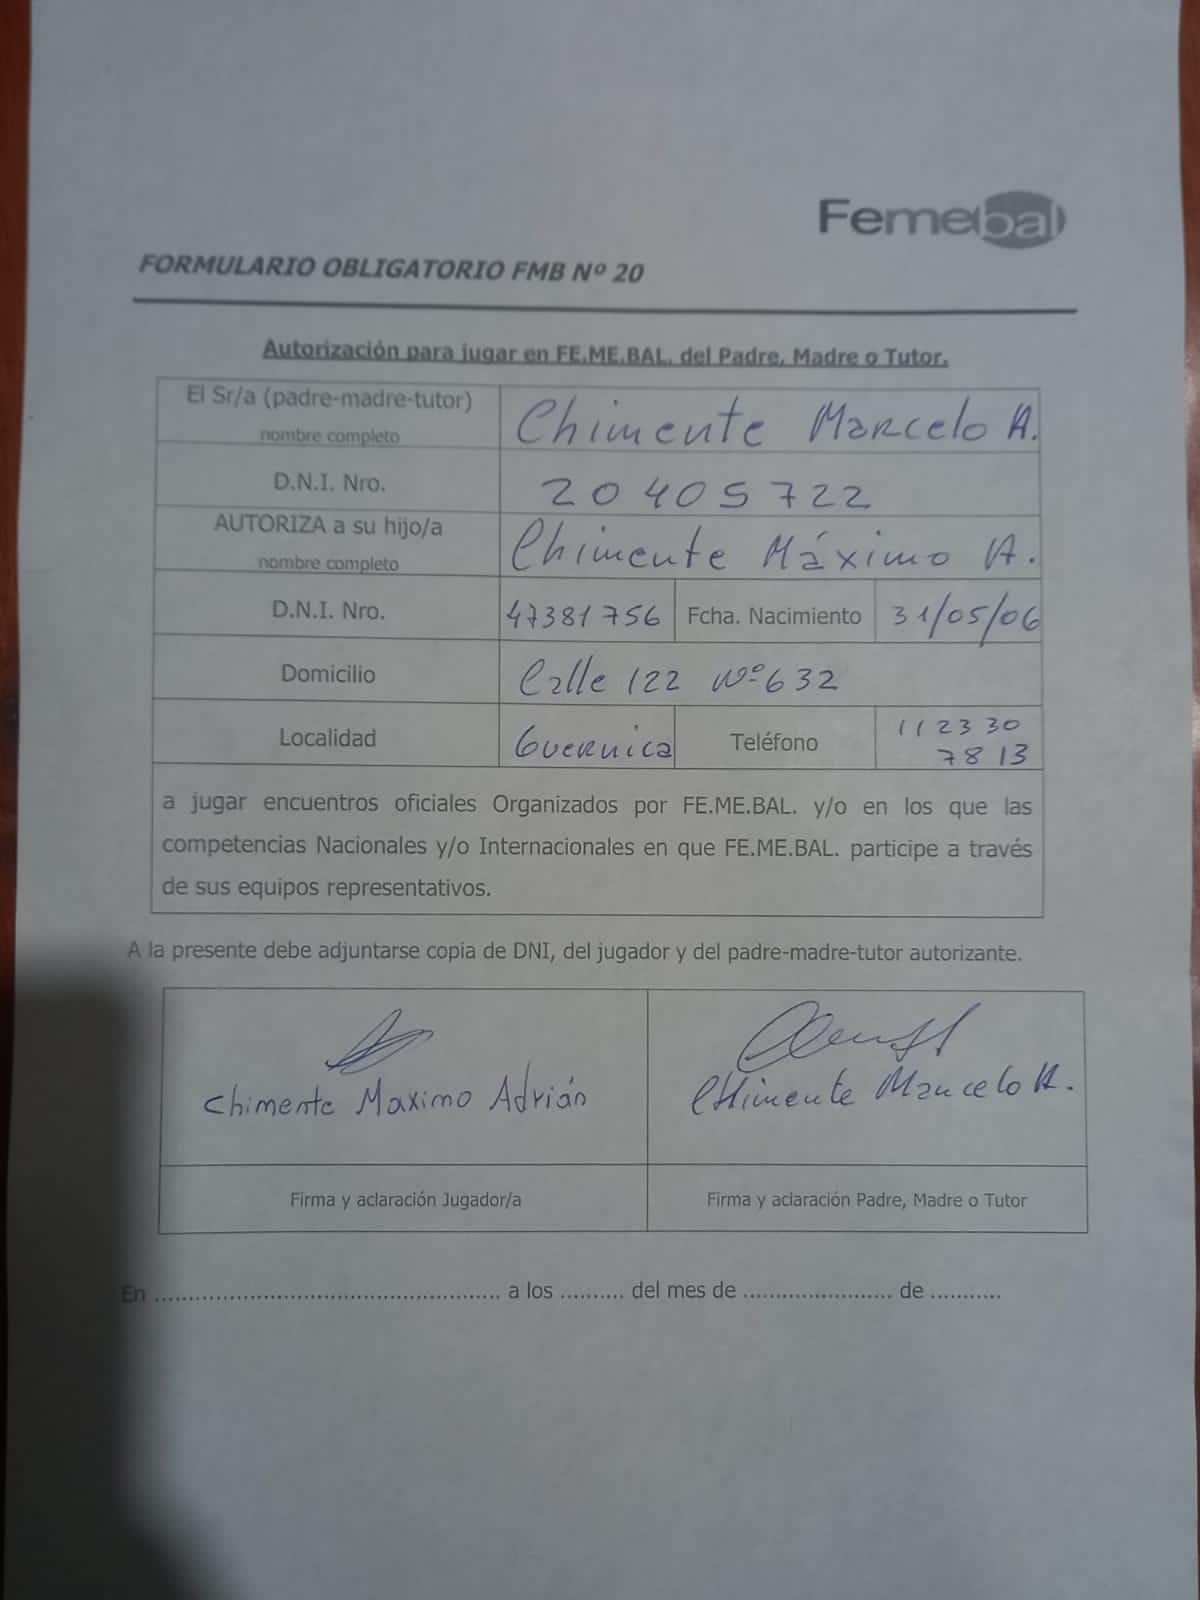 Femebal
FORMULARIO OBLIGATORIO FMB Nº 20
Autorización para jugar en FE.ME.BAL. del Padre, Madre o Tutor.
El Sr/a (padre-madre-tutor)
nombre completo
Chimente Marcelo A.
D.N.I. Nro.
20405722
AUTORIZA a su hijo/a
nombre completo
Chimente Máximo A.
D.N.I. Nro.
47381756
Fcha. Nacimiento
31/05/06
Domicilio
Calle 122 Nº 632
Localidad
Guernica
Teléfono
112330
7813
a jugar encuentros oficiales Organizados por FE.ME.BAL. y/o en los que las
competencias Nacionales y/o Internacionales en que FE.ME.BAL. participe a través
de sus equipos representativos.
A la presente debe adjuntarse copia de DNI, del jugador y del padre-madre-tutor autorizante.
Chimente Maximo Adrián
Chimente Marcelo A.
Firma y aclaración Jugador/a
Firma y aclaración Padre, Madre o Tutor
En .................................................... a los .......... del mes de ....................... de ...........